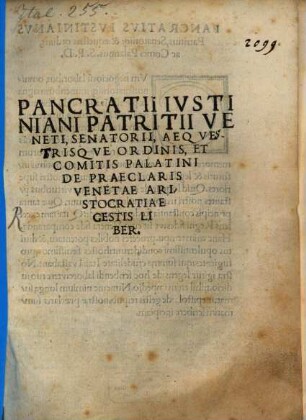 Ital. 255.
2099.
PANCRATII IVSTI
NIANI PATRITII VE
NETI, SENATORII, AEQVES-
TRISQVE ORDINIS, ET
COMITIS PALATINI
DE PRAECLARIS
VENETAE ARI-
STOCRATIAE
GESTIS LI
BER.
R